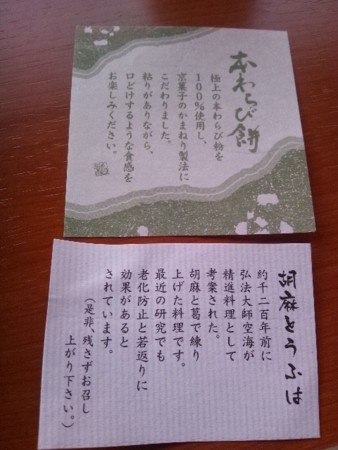 本わらび餅
極上の本わらび粉を
100%使用し、
京菓子のかまねり製法に
こだわりました。
粘りがありながら、
口どけするような食感を
お楽しみください。
胡麻とうふは
約千二百年前に
弘法大師空海が
精進料理として
考案された。
胡麻と葛で練り
上げた料理です。
最近の研究でも
老化防止と若返りに
効果があると
されています。
(是非、残さずお召し
上がり下さい。)